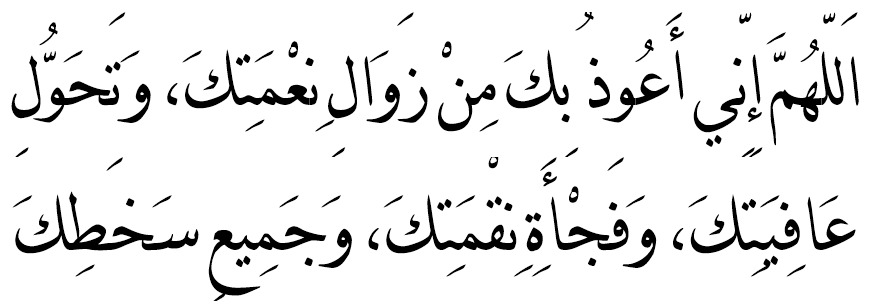 اَللّٰهُمَّ إِنِّي أَعُوذُ بِكَ مِنْ زَوَالِ نِعْمَتِكَ، وَتَحَوُّلِ
عَافِيَتِكَ، وَفَجْأَةِ نِقْمَتِكَ، وَجَمِيعِ سَخَطِكَ